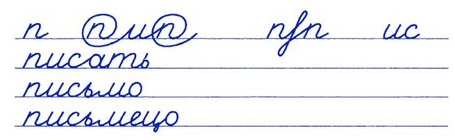 п пип п/п ис
писать
письмо
письмецо